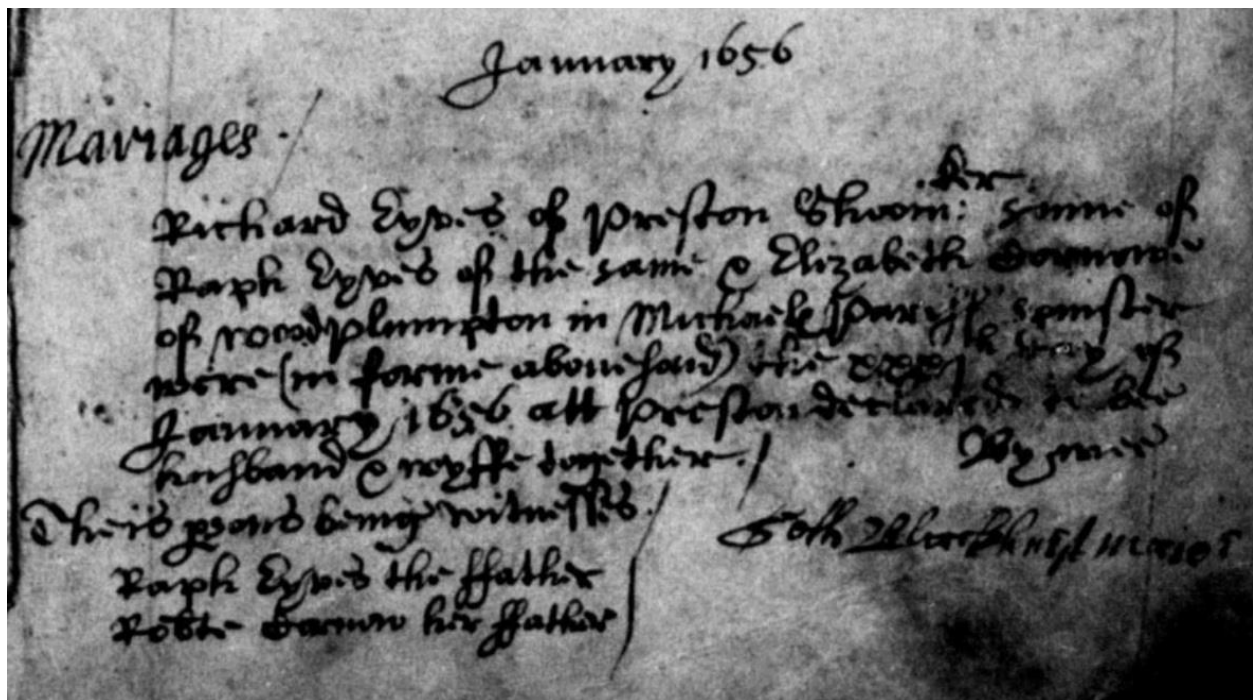 January 1656
Mariages.
Richard Eyves of Preston sonne of
Raph Eyves of the same & Elizabeth
of woodplumpton in Michaels Parish spinster
were (in forme abovesaid) the xxxjth day of
January 1656 att Preston declared to bee
husband & wyffe together. By mee
Theis psons being witnesses.
Raph Eyves the ffather
Robte her ffather